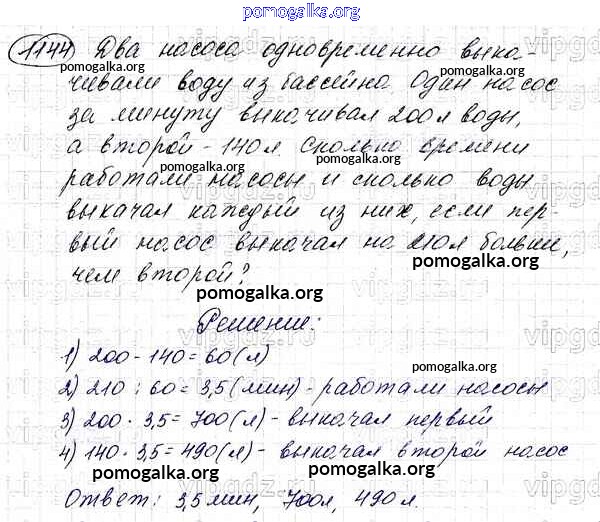 pomogalka.org
1144 Два насоса одновременно выка-
чивали воду из бассейна. Один насос
за минуту выкачивал 200 л воды,
а второй - 140 л. Сколько времени
работали насосы и сколько воды
выкачал каждый из них, если пер-
вый насос выкачал на 210 л больше,
чем второй?
pomogalka.org
Решение:
1) 200 - 140 = 60 (л)
2) 210 : 60 = 3,5 (мин) - работали насосы
3) 200 · 3,5 = 700 (л) - выкачал первый
4) 140 · 3,5 = 490 (л) - выкачал второй насос
pomogalka.org
Ответ: 3,5 мин, 700 л, 490 л.